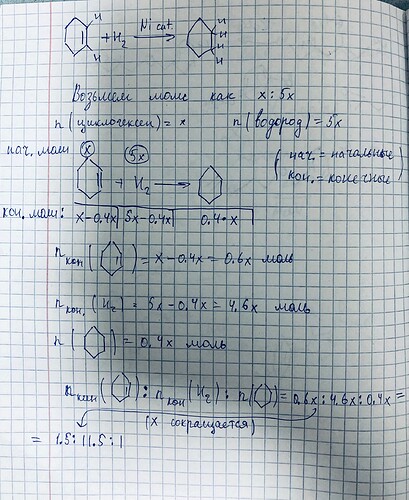 H H
+ H₂ Ni cat. → H H
H H
Возьмем моль как x : 5x
n (циклогексен) = x n (водород) = 5x
нач. моль x 5x ( нач. = начальные
+ H₂ → кон. = конечные )
кон. моль: x - 0.4x | 5x - 0.4x | 0.4 • x
nкон ( ) = x - 0.4x = 0.6x моль
nкон. (H₂) = 5x - 0.4x = 4.6x моль
n ( ) = 0.4x моль
nкон ( ) : nкон (H₂) : n ( ) = 0.6x : 4.6x : 0.4x =
(x сокращается)
= 1.5 : 11.5 : 1